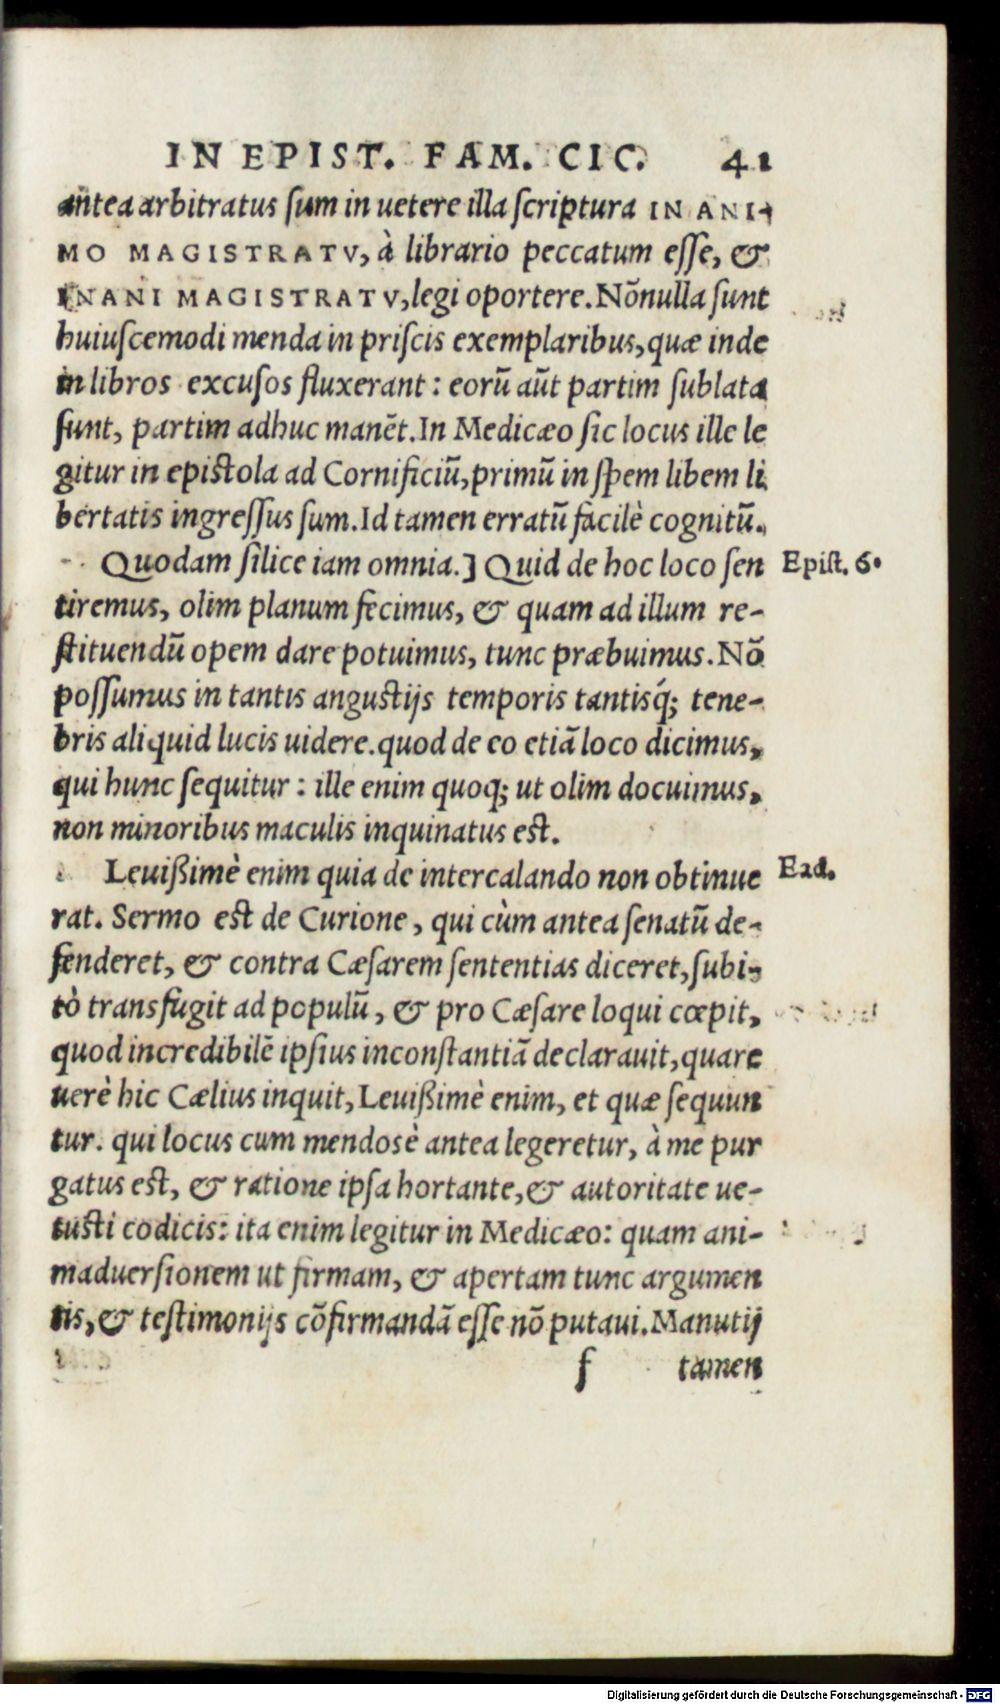 IN EPIST. FAM. CIC. 41
antea arbitratus sum in uetere illa scriptura IN ANI-
MO MAGISTRATV, à librario peccatum esse, &
INANI MAGISTRATV, legi oportere. Nõnulla sunt
huiuscemodi menda in priscis exemplaribus, quæ inde
in libros excusos fluxerant: eorũ aũt partim sublata
sunt, partim adhuc manẽt. In Medicæo sic locus ille le
gitur in epistola ad Cornificiũ, primũ in spem libem li
bertatis ingressus sum. Id tamen erratũ facilè cognitũ.
Quodam silice iam omnia.] Quid de hoc loco sen
Epist. 6.
tiremus, olim planum fecimus, & quam ad illum re-
stituendũ opem dare potuimus, tunc præbuimus. Nõ
possumus in tantis angustijs temporis tantisq́; tene-
bris aliquid lucis uidere. quod de eo etiã loco dicimus,
qui hunc sequitur: ille enim quoq; ut olim docuimus,
non minoribus maculis inquinatus est.
Leuißimè enim quia de intercalando non obtinue
Ead.
rat. Sermo est de Curione, qui cùm antea senatũ de-
fenderet, & contra Cæsarem sententias diceret, subi-
tò transfugit ad populũ, & pro Cæsare loqui cœpit,
quod incredibilẽ ipsius inconstantiã declarauit, quare
uerè hic Cælius inquit, Leuißimè enim, et quæ sequun
tur. qui locus cum mendosè antea legeretur, à me pur
gatus est, & ratione ipsa hortante, & autoritate ue-
tusti codicis: ita enim legitur in Medicæo: quam ani-
maduersionem ut firmam, & apertam tunc argumen
tis, & testimonijs cõfirmandã esse nõ putaui. Manutij
f tamen
Digitalisierung gefördert durch die Deutsche Forschungsgemeinschaft - DFG